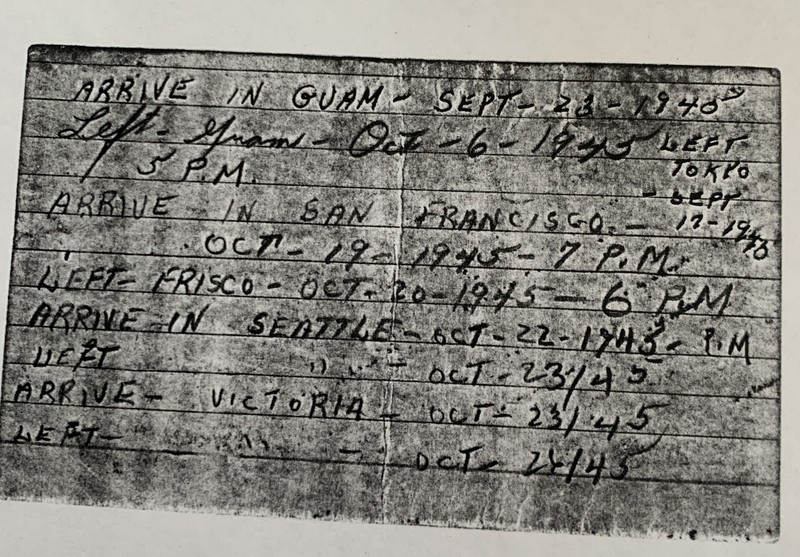 ARRIVE IN GUAM - SEPT - 23 - 1945
Left - Guam - Oct - 6 - 1945 LEFT
5 P.M. TOKYO
- SEPT
ARRIVE IN SAN FRANCISCO. - 17-1945
OCT - 19 - 1945 - 7 P.M.
LEFT - FRISCO - OCT - 20 - 1945 - 6 P.M
ARRIVE - IN SEATTLE - OCT - 22 - 1945 - P.M
LEFT " " - OCT - 23/45
ARRIVE - VICTORIA - OCT - 23/45
LEFT - - OCT - 24/45